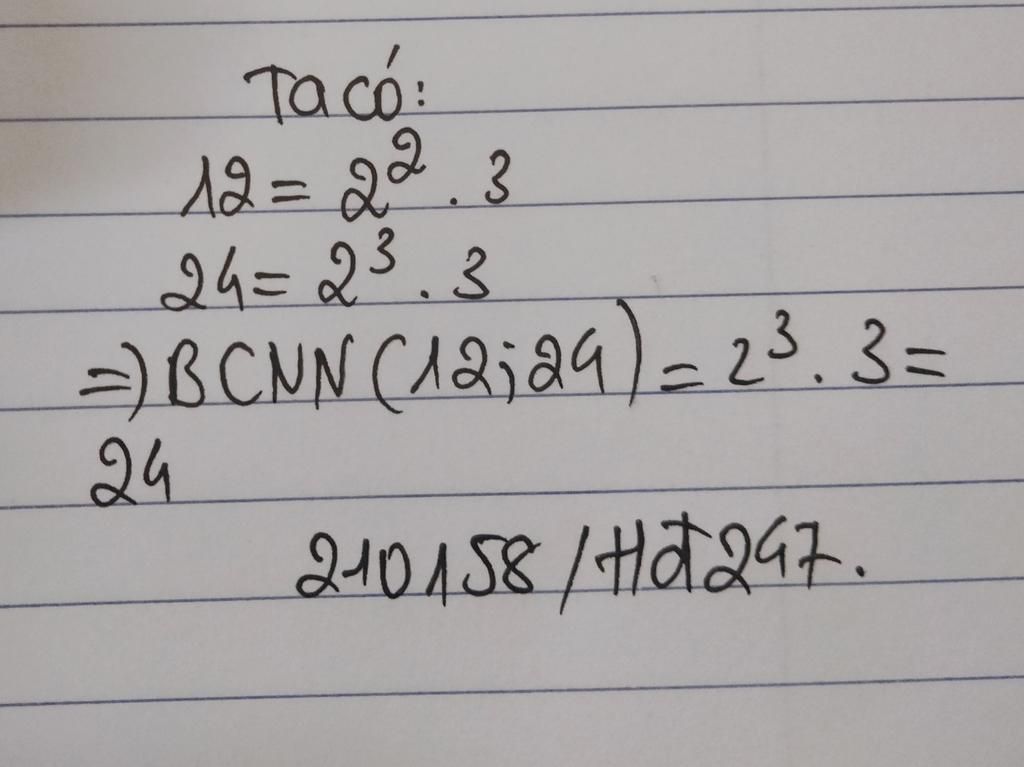 Ta có:
12 = 2² . 3
24 = 2³ . 3
=) BCNN (12; 24) = 2³ . 3 =
24
210158 / Hđ247.